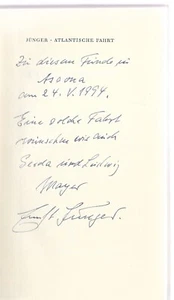 JÜNGER · ATLANTISCHE FAHRT
Zu diesem Funde in
Ascona
vom 24. V. 1994.
Eine solche Fahrt
wünschen wir auch
Gerda und Ludwig
Mayer
Ernst Jünger.